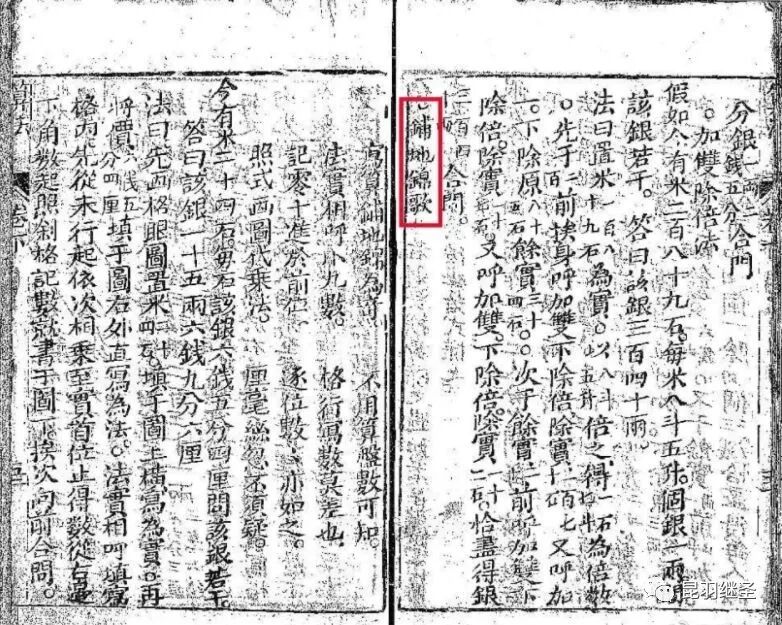 分銀一兩二錢五分合問
。加雙除倍法
假如今有米二百八十九石。每米八斗五升。個銀一兩問
該銀若干。 答曰該銀三百四十兩。
法曰置米二百八十九石為實。以八斗五升倍之得一石為倍數
。先于二前挨身呼加雙下除倍除實一百七又呼加
一。下除原八十五石餘實三十四石。次于餘實三前呼加雙下
除倍。除實一十七石又呼加雙。下除倍。除實一十七石。恰盡得銀
三百四 合問。
鋪地錦歌
寫算鋪地錦為奇 不用算盤數可知。
法實相呼小九數。 格行寫數莫差
記零十進於前位 逐位數 亦如之。
照式画圖代乘法。 厘毫絲忽不須疑。
今有米二十四石。每石該銀六錢五分四厘問該銀若干。
答曰該銀一十五兩六錢九分六厘
法曰先画格眼圖置米二十四石。填于圖上橫寫為實。再
呼價六錢五分四厘填于圖右外直寫為法。法實相呼填寫
格內先從末行起依次相乘至實首位止得數從右邊
下角數起照斜格記數就書于圖下挨次向前合問。
算法 卷下 五
昆羽继圣